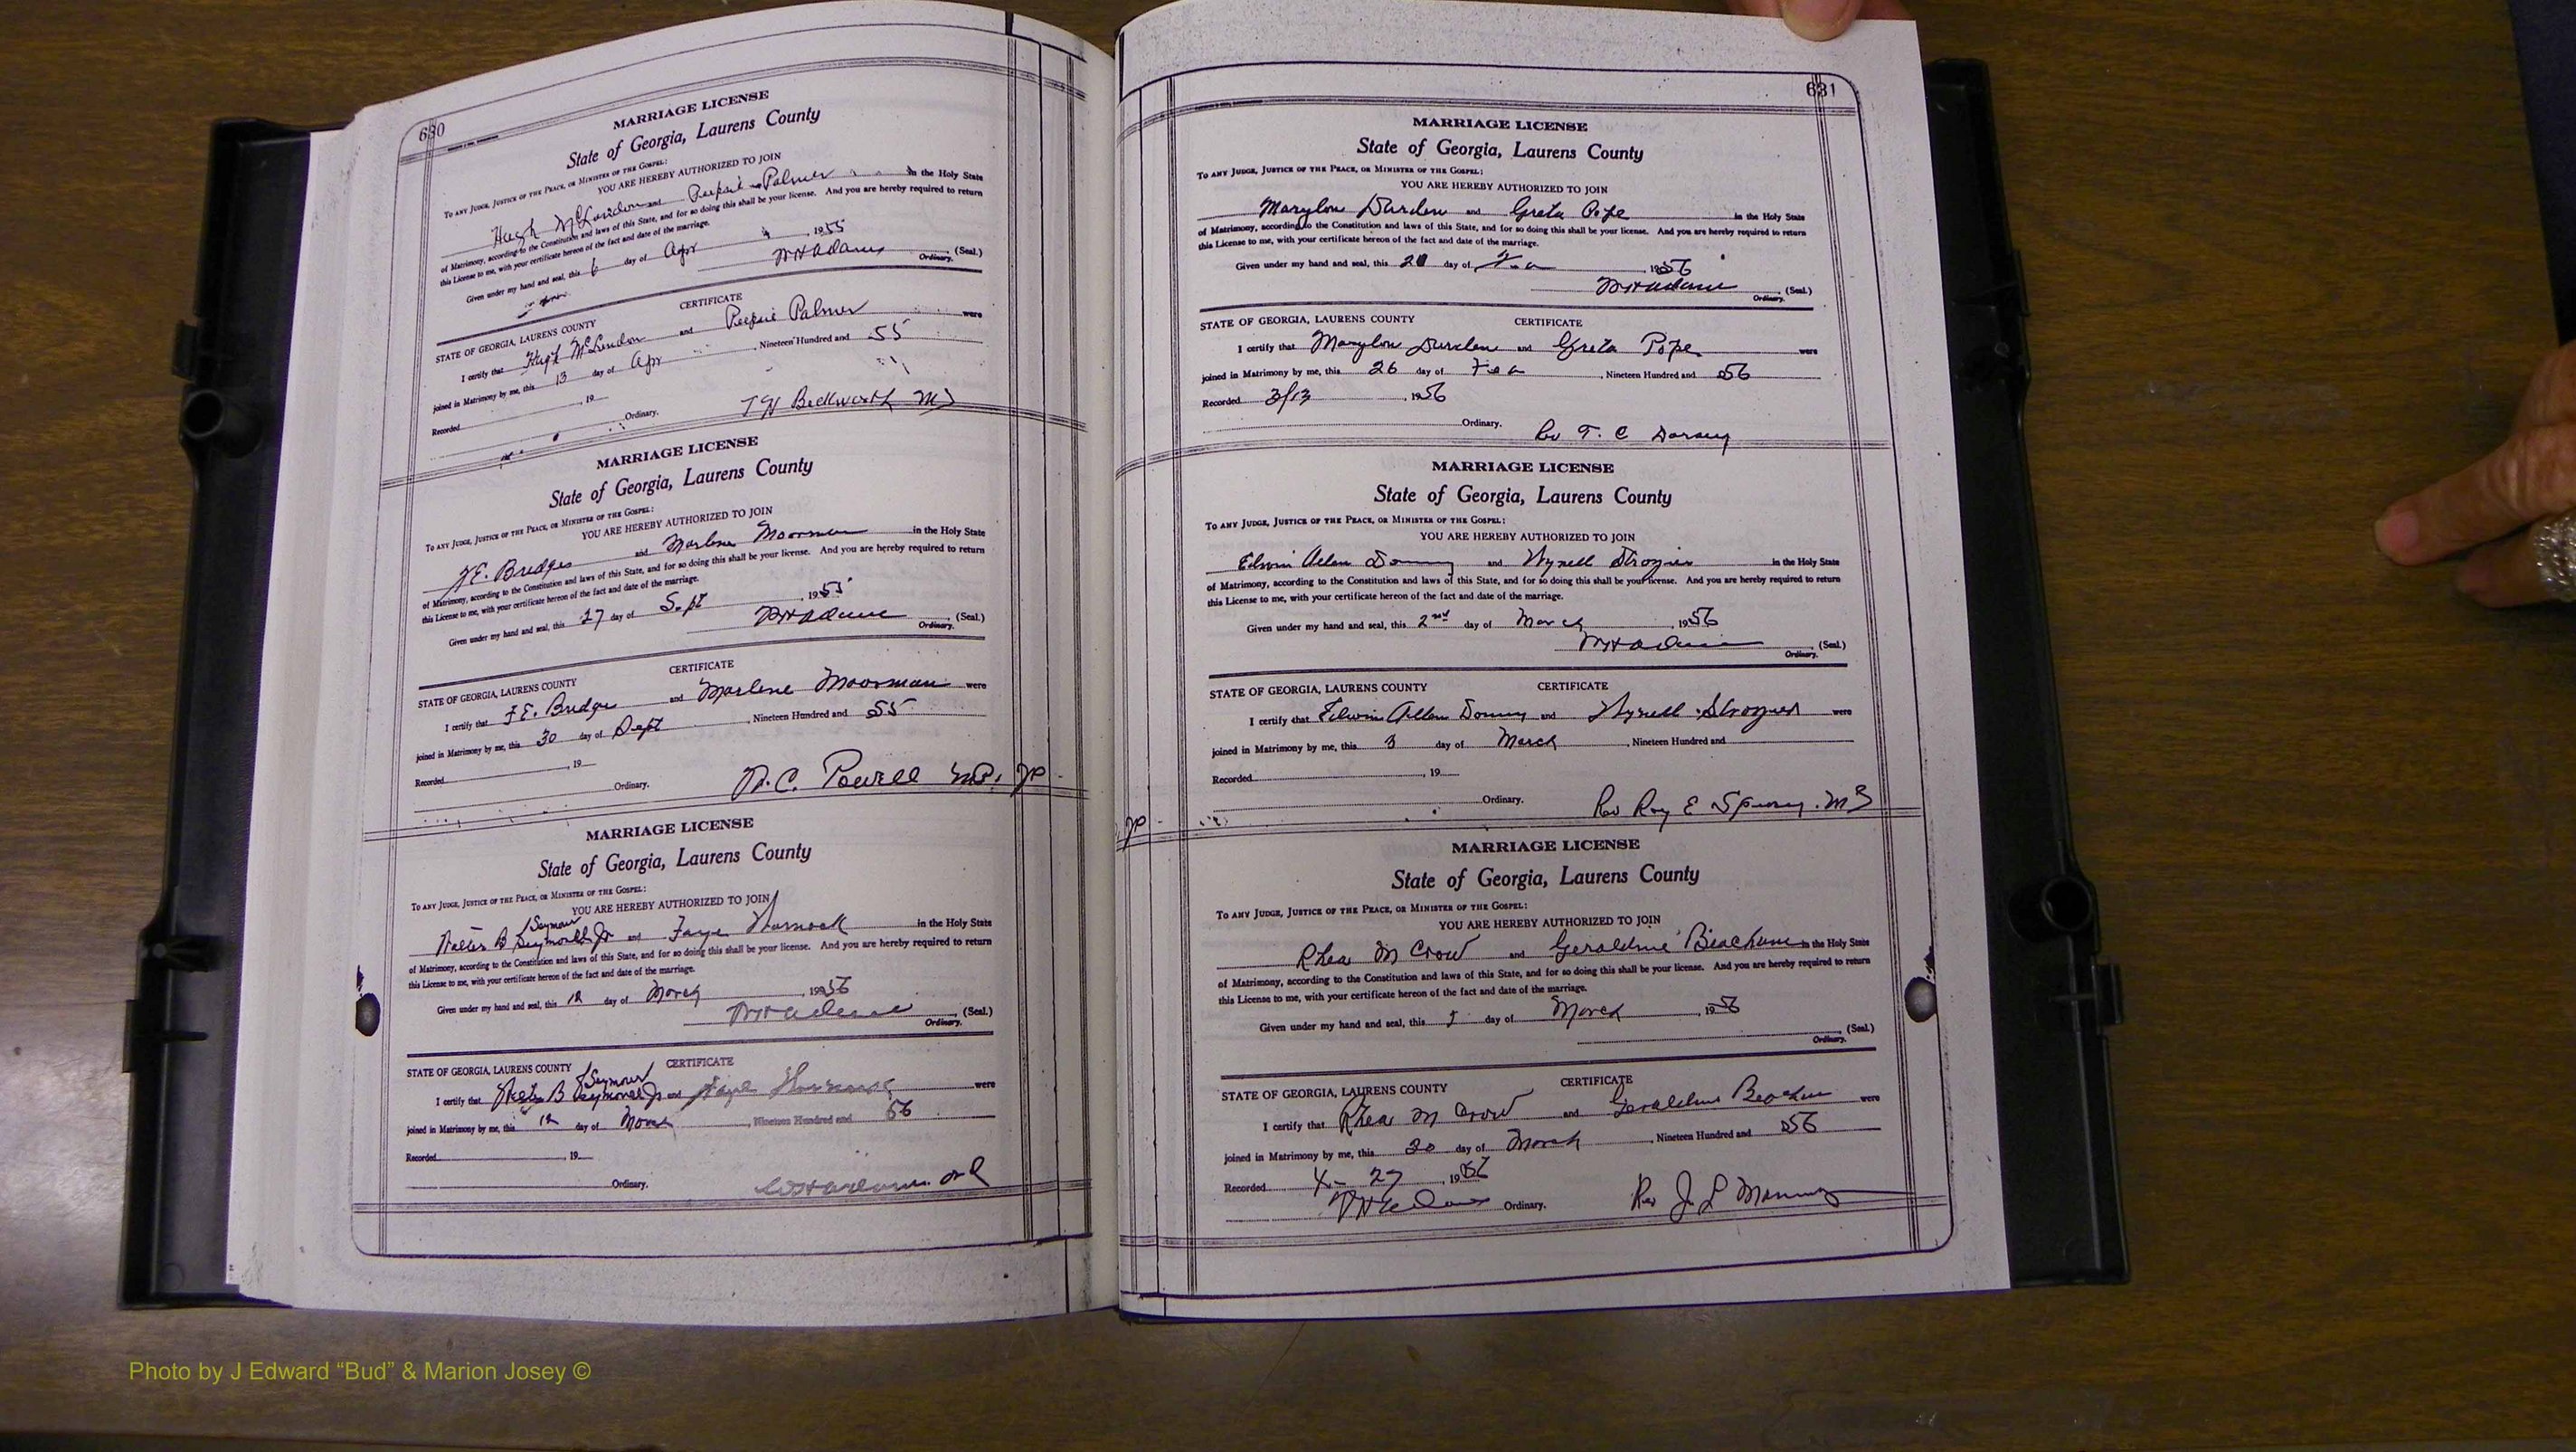 630
MARRIAGE LICENSE
State of Georgia, Laurens County
To any Judge, Justice of the Peace, or Minister of the Gospel:
YOU ARE HEREBY AUTHORIZED TO JOIN
Hugh McLendon and Palmer in the Holy State
of Matrimony, according to the Constitution and laws of this State, and for so doing this shall be your license. And you are hereby required to return
this License to me, with your certificate hereon of the fact and date of the marriage.
Given under my hand and seal, this 6 day of Apr 1955
WHAdams (Seal.)
Ordinary.
CERTIFICATE
STATE OF GEORGIA, LAURENS COUNTY
I certify that Hugh McLendon and Palmer were
joined in Matrimony by me, this 13 day of Apr, Nineteen Hundred and 55
Recorded , 19
Ordinary. Beckworth
MARRIAGE LICENSE
State of Georgia, Laurens County
To any Judge, Justice of the Peace, or Minister of the Gospel:
YOU ARE HEREBY AUTHORIZED TO JOIN
F.E. Bridges and Marlene Moorman in the Holy State
of Matrimony, according to the Constitution and laws of this State, and for so doing this shall be your license. And you are hereby required to return
this License to me, with your certificate hereon of the fact and date of the marriage.
Given under my hand and seal, this 27 day of Sept , 1955
WHAdams (Seal.)
Ordinary.
CERTIFICATE
STATE OF GEORGIA, LAURENS COUNTY
I certify that F.E. Bridges and Marlene Moorman were
joined in Matrimony by me, this 30 day of Sept , Nineteen Hundred and 55
Recorded , 19
Ordinary. Powell
MARRIAGE LICENSE
State of Georgia, Laurens County
To any Judge, Justice of the Peace, or Minister of the Gospel:
YOU ARE HEREBY AUTHORIZED TO JOIN
Seymour
Walter B Jr and Faye in the Holy State
of Matrimony, according to the Constitution and laws of this State, and for so doing this shall be your license. And you are hereby required to return
this License to me, with your certificate hereon of the fact and date of the marriage.
Given under my hand and seal, this 12 day of March , 1956
WHAdams (Seal.)
Ordinary.
CERTIFICATE
STATE OF GEORGIA, LAURENS COUNTY
Seymour
I certify that Walter B Jr and Faye were
joined in Matrimony by me, this 12 day of March , Nineteen Hundred and 56
Recorded , 19
Ordinary. WHAdams
631
MARRIAGE LICENSE
State of Georgia, Laurens County
To any Judge, Justice of the Peace, or Minister of the Gospel:
YOU ARE HEREBY AUTHORIZED TO JOIN
Marylou Durden and Greta Pope in the Holy State
of Matrimony, according to the Constitution and laws of this State, and for so doing this shall be your license. And you are hereby required to return
this License to me, with your certificate hereon of the fact and date of the marriage.
Given under my hand and seal, this day of , 1956
WHAdams (Seal.)
Ordinary.
STATE OF GEORGIA, LAURENS COUNTY CERTIFICATE
I certify that Marylou Durden and Greta Pope were
joined in Matrimony by me, this 26 day of , Nineteen Hundred and 56
Recorded 3/13 , 1956
Ordinary. Rev T. C Dorsey
MARRIAGE LICENSE
State of Georgia, Laurens County
To any Judge, Justice of the Peace, or Minister of the Gospel:
YOU ARE HEREBY AUTHORIZED TO JOIN
Edwin Allen and Strozier in the Holy State
of Matrimony, according to the Constitution and laws of this State, and for so doing this shall be your license. And you are hereby required to return
this License to me, with your certificate hereon of the fact and date of the marriage.
Given under my hand and seal, this 2nd day of March , 1956
WHAdams (Seal.)
Ordinary.
STATE OF GEORGIA, LAURENS COUNTY CERTIFICATE
I certify that Edwin Allen and Strozier were
joined in Matrimony by me, this 3 day of March , Nineteen Hundred and
Recorded , 19
Ordinary. Rev Roy E
MARRIAGE LICENSE
State of Georgia, Laurens County
To any Judge, Justice of the Peace, or Minister of the Gospel:
YOU ARE HEREBY AUTHORIZED TO JOIN
Rhea M Crow and Geraldine Beacham in the Holy State
of Matrimony, according to the Constitution and laws of this State, and for so doing this shall be your license. And you are hereby required to return
this License to me, with your certificate hereon of the fact and date of the marriage.
Given under my hand and seal, this day of March , 1956
(Seal.)
Ordinary.
STATE OF GEORGIA, LAURENS COUNTY CERTIFICATE
I certify that Rhea M Crow and Geraldine Beacham were
joined in Matrimony by me, this 20 day of March , Nineteen Hundred and 56
Recorded 4-27 , 1956
WHAdams Ordinary. Rev J. L
Photo by J Edward “Bud” & Marion Josey ©